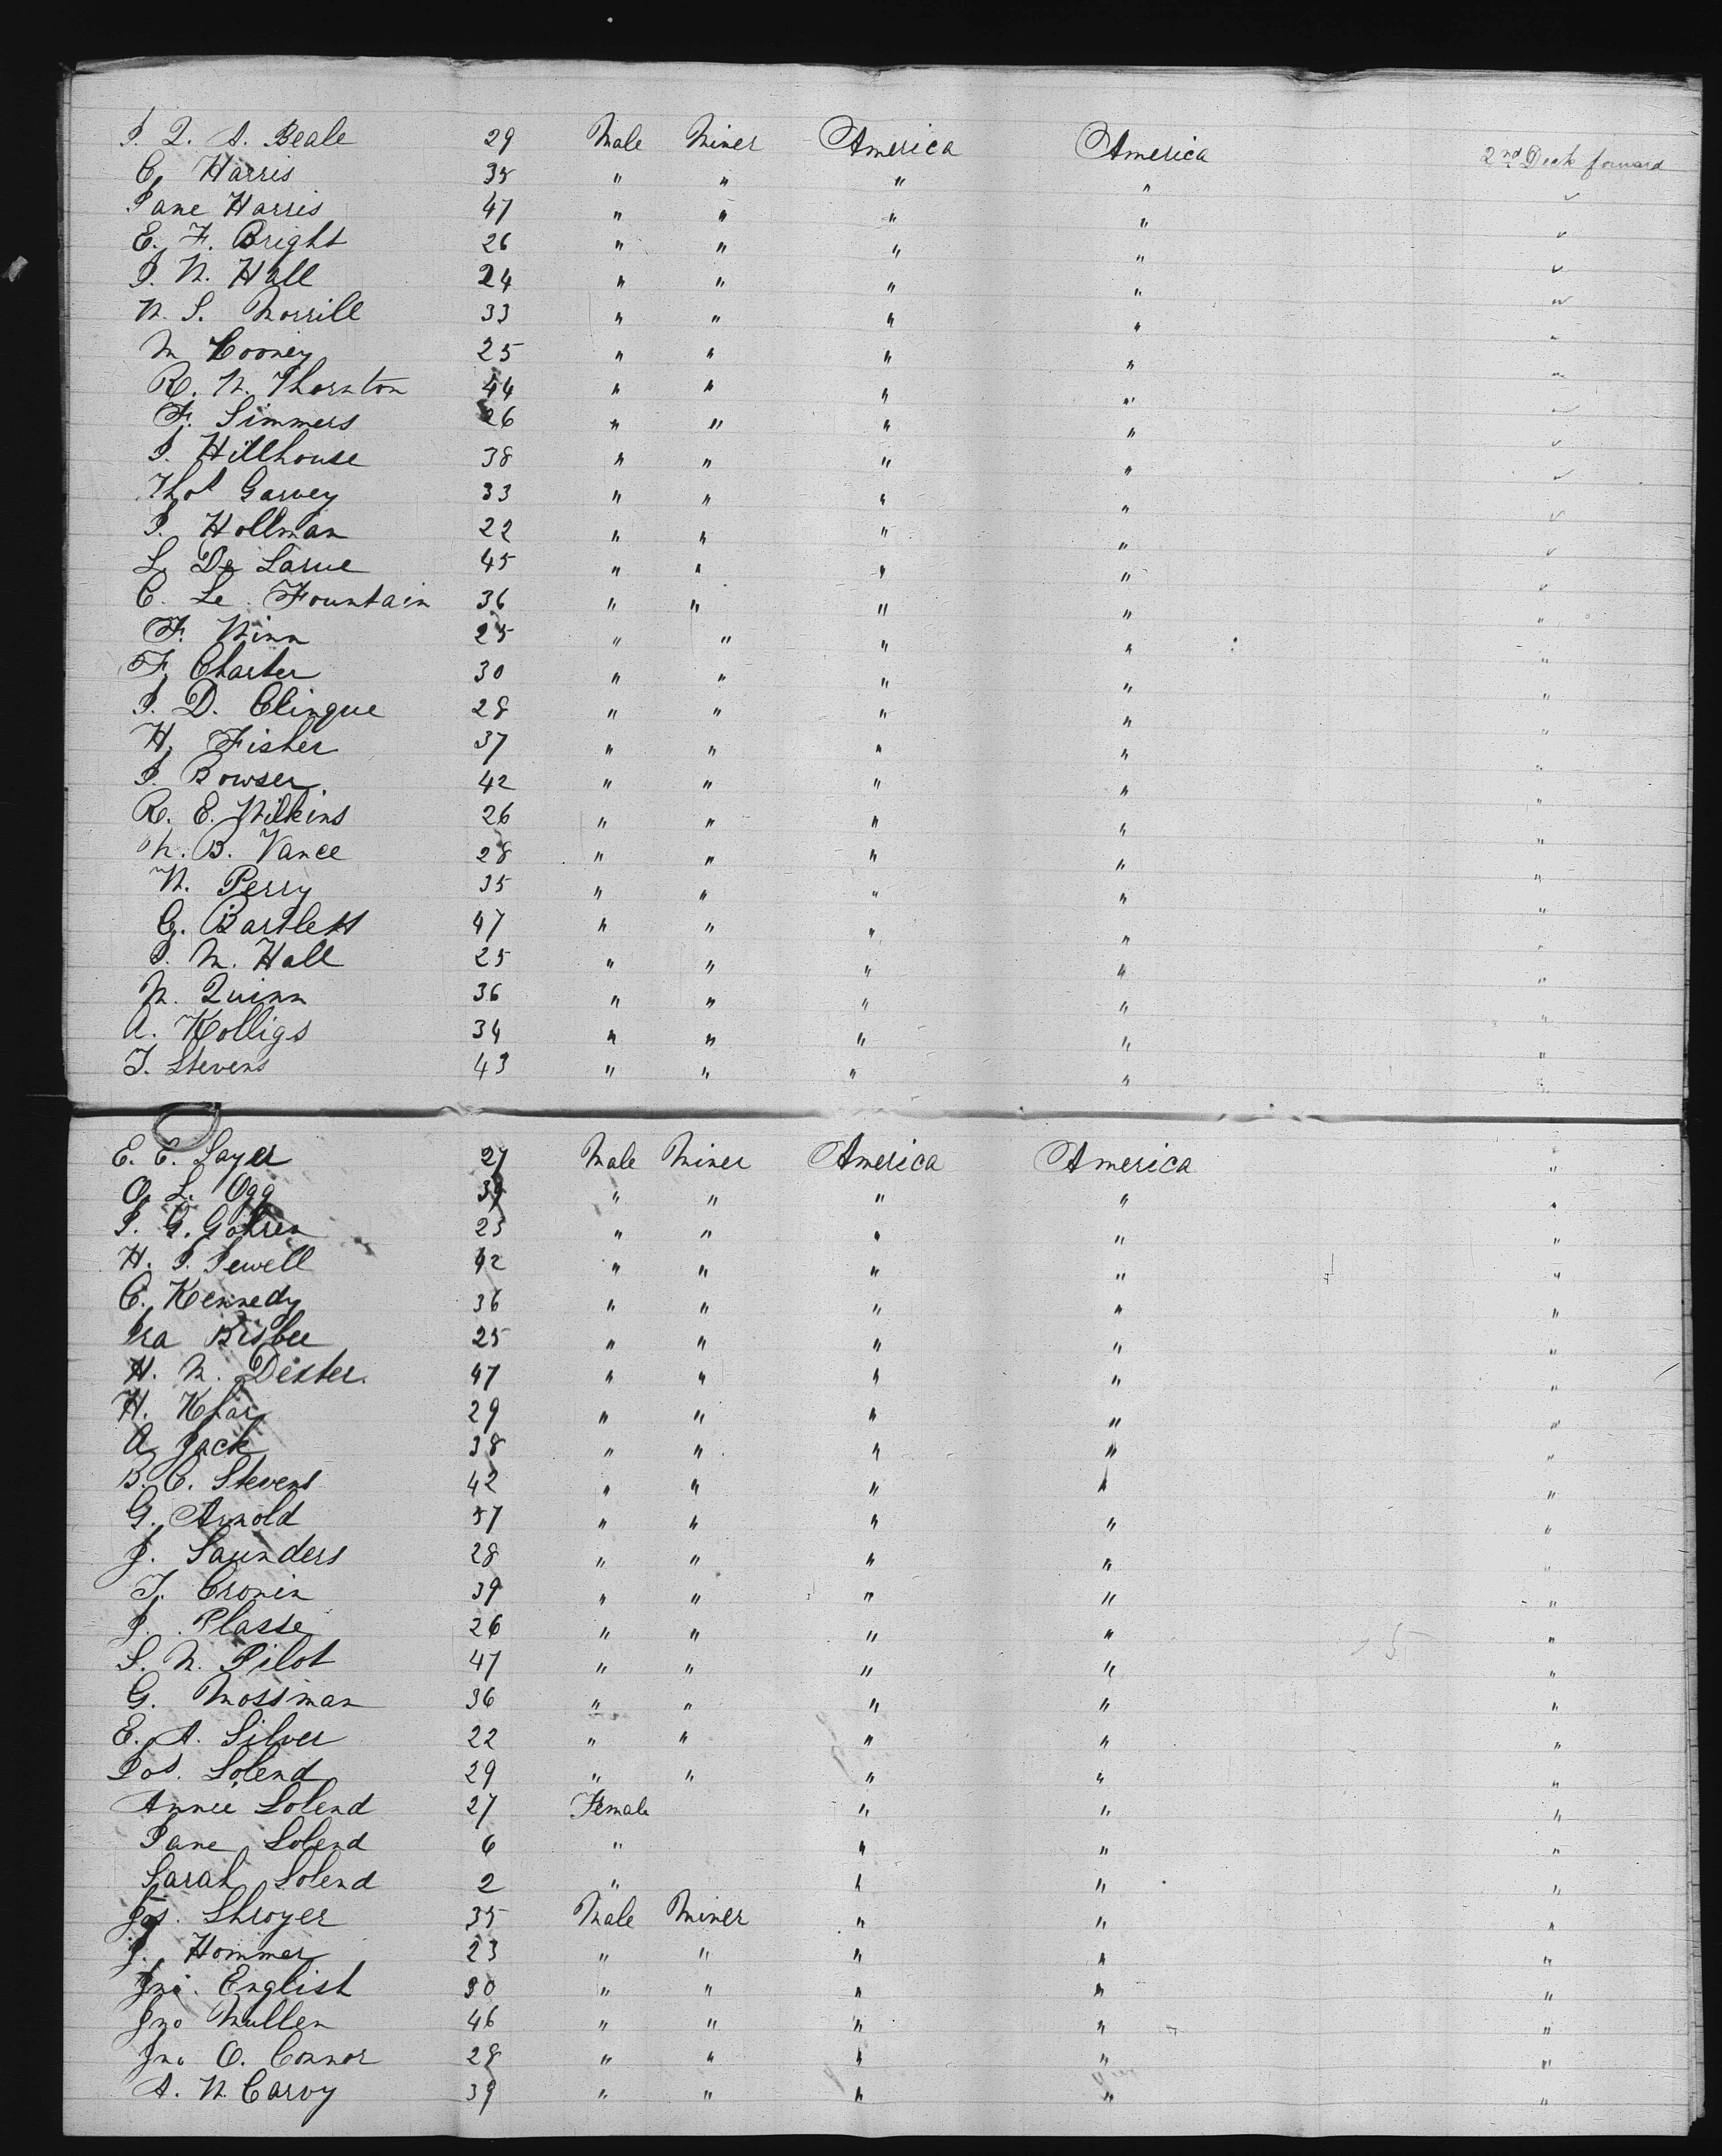 J. Q. A. Beale 29 Male Miner America America 2nd Deck forward
C. Harris 35 " " " " ✓
Jane Harris 47 " " " " ✓
E. F. Bright 26 " " " " ✓
J. W. Hall 24 " " " " "
N. S. Morrill 33 " " " " "
M Cooney 25 " " " " "
R. W. Thornton 44 " " " " ✓
F. Simmers 26 " " " " ✓
J. Hillhouse 38 " " " " ✓
Thos Garvey 33 " " " " ✓
J. Hollman 22 " " " " ✓
L. De Larue 45 " " " " ✓
C. Le Fountain 36 " " " " "
F. Ninn 25 " " " " "
F. Charter 30 " " " " "
J. D. Clingue 28 " " " " "
H. Fisher 37 " " " " "
J. Bowser 42 " " " " "
R. E. Wilkins 26 " " " " "
M. B. Vance 28 " " " " "
W. Perry 35 " " " " "
G. Bartlett 47 " " " " "
J. M. Hall 25 " " " " "
M. Quinn 36 " " " " "
A. Kolligs 34 " " " " "
T. Stevens 43 " " " " "
E. E. Sayer 27 Male Miner America America "
O. L. Ogg 39 " " " " "
J. G. 23 " " " " "
H. J. Jewell 42 " " " " "
C. Kennedy 36 " " " " "
Ira Bisbee 25 " " " " "
H. M. Dexter. 47 " " " " "
H. 29 " " " " "
A. Jack 38 " " " " "
B. C. Stevens 42 " " " " "
G. Arnold 57 " " " " "
J. Saunders 28 " " " " "
T. Cronin 39 " " " " "
J. Plasse 26 " " " " "
S. N. Pilot 47 " " " " "
G. Mossman 36 " " " " "
E. A. Silver 22 " " " " "
Jos. Solend 29 " " " " "
Annie Solend 27 Female " " "
Jane Solend 6 " " " "
Sarah Solend 2 " " " "
Jos. Shroyer 35 Male Miner " " "
J. Hommer 23 " " " " "
Jno. English 30 " " " " "
Jno Mullen 46 " " " " "
Jno O. Connor 28 " " " " "
A. W. Carvy 39 " " " " "